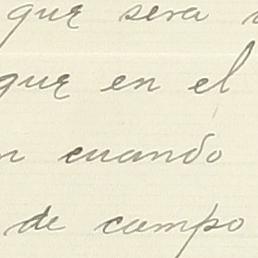 que sera
que en el
cuando
de campo